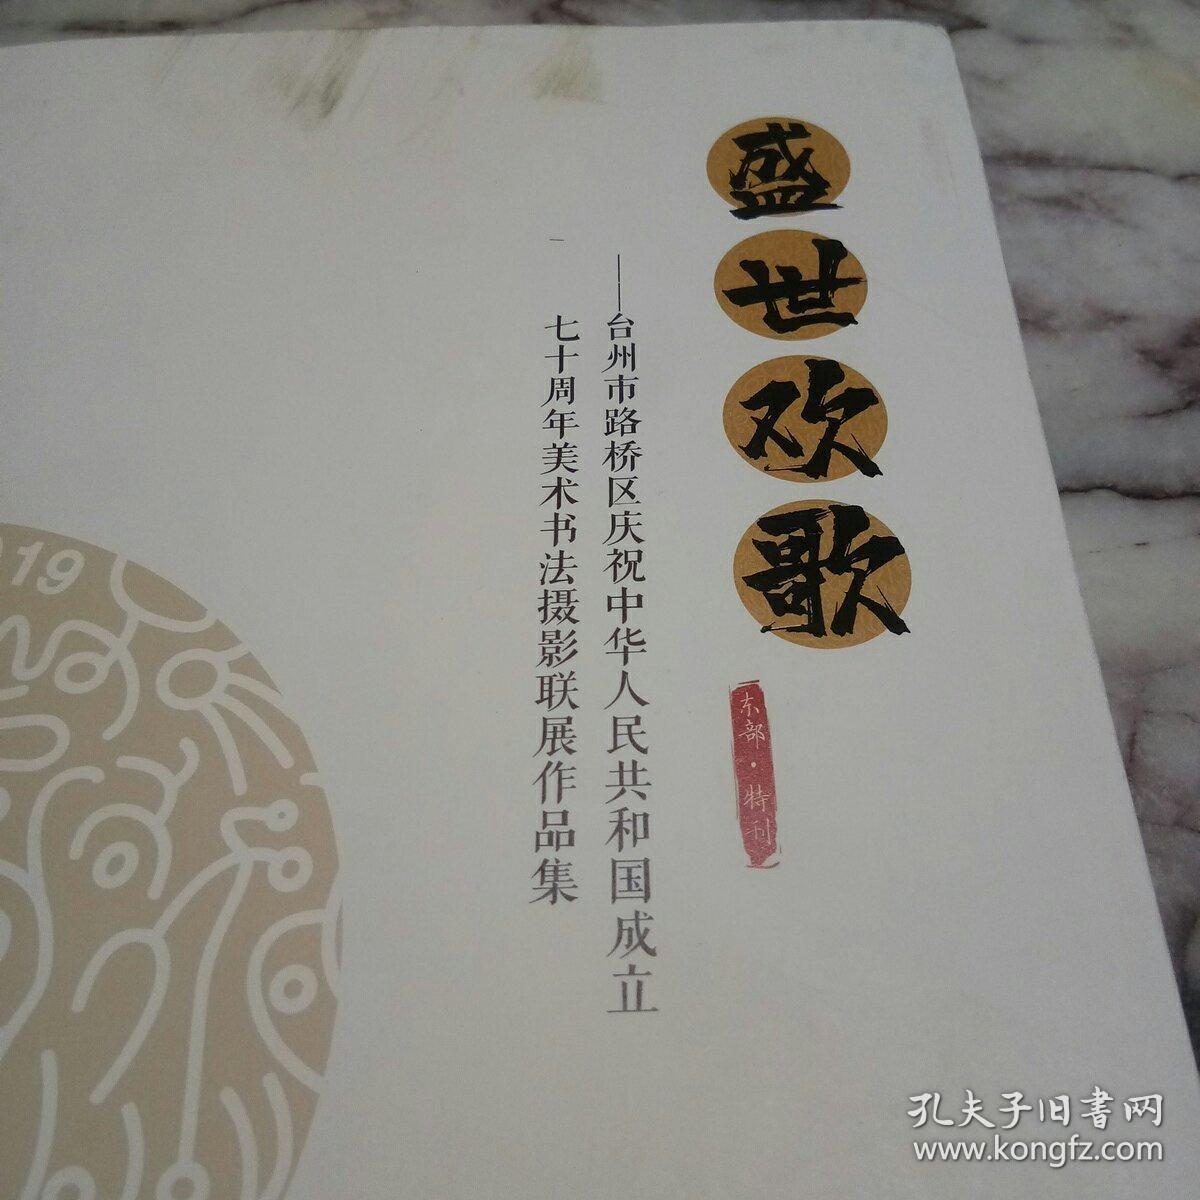 盛世欢歌
——台州市路桥区庆祝中华人民共和国成立
七十周年美术书法摄影联展作品集
东部·特刊
019
孔夫子旧书网
www.kongfz.com